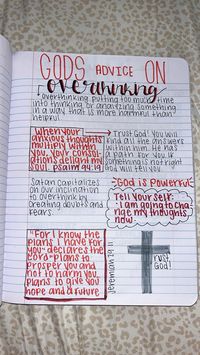 GODS ADVICE ON
overthinking
overthinking: putting too much time
into thinking or analyzing something
in a way that is more harmful than
helpful
when your
anxious thoughts
multiply within
you, your consol-
ations delight my
soul. psalm 94:19
→ Trust God! You will
find all the answers
within him. He has
a path for you. If
something is not right
God will tell you
Satan capitalizes
on our inclination
to overthink by
creating doubts and
fears.
"God is Powerful"
Tell yourself:
i am going to cha
nge my thoughts
now
"For i know the
plans i have for
you" declares the
Lord "plans to
prosper you and
not to harm you,
plans to give you
hope and a future
Jeremiah 29:11
Trust
God!